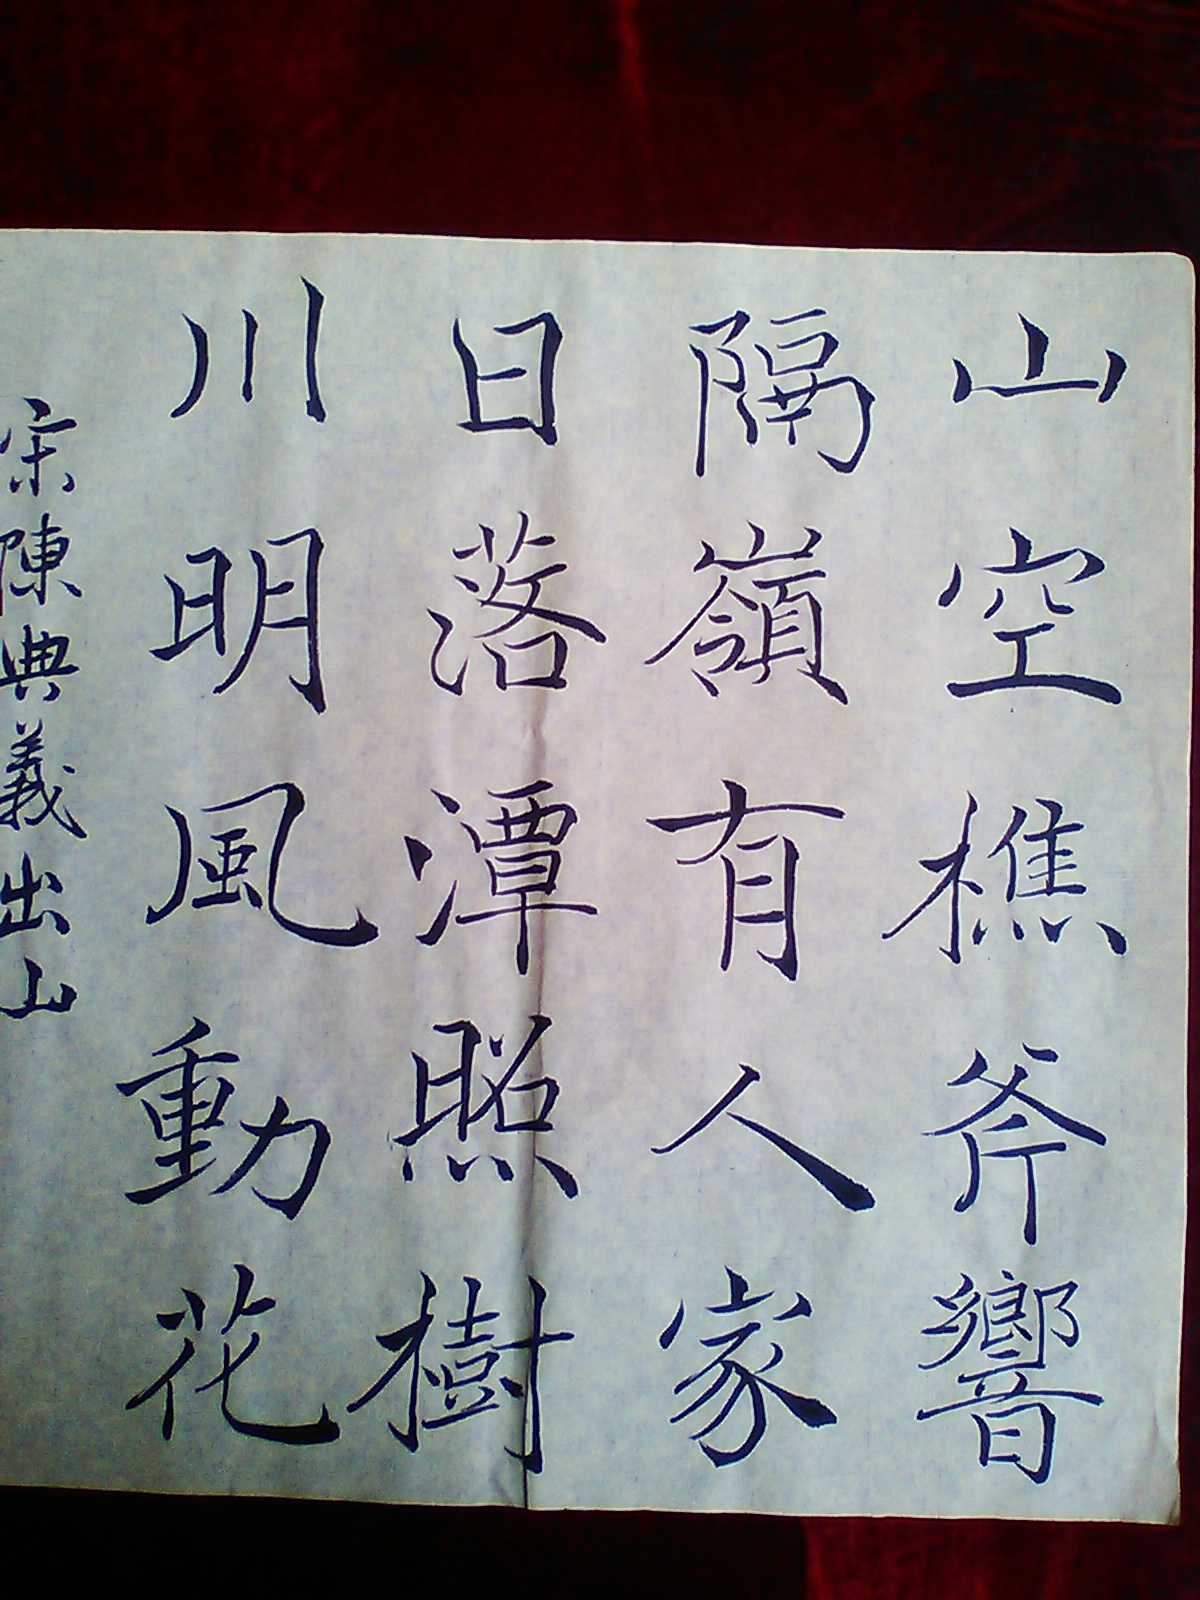 山空樵斧響
隔嶺有人家
日落潭照樹
川明風動花
宋陳典義出山